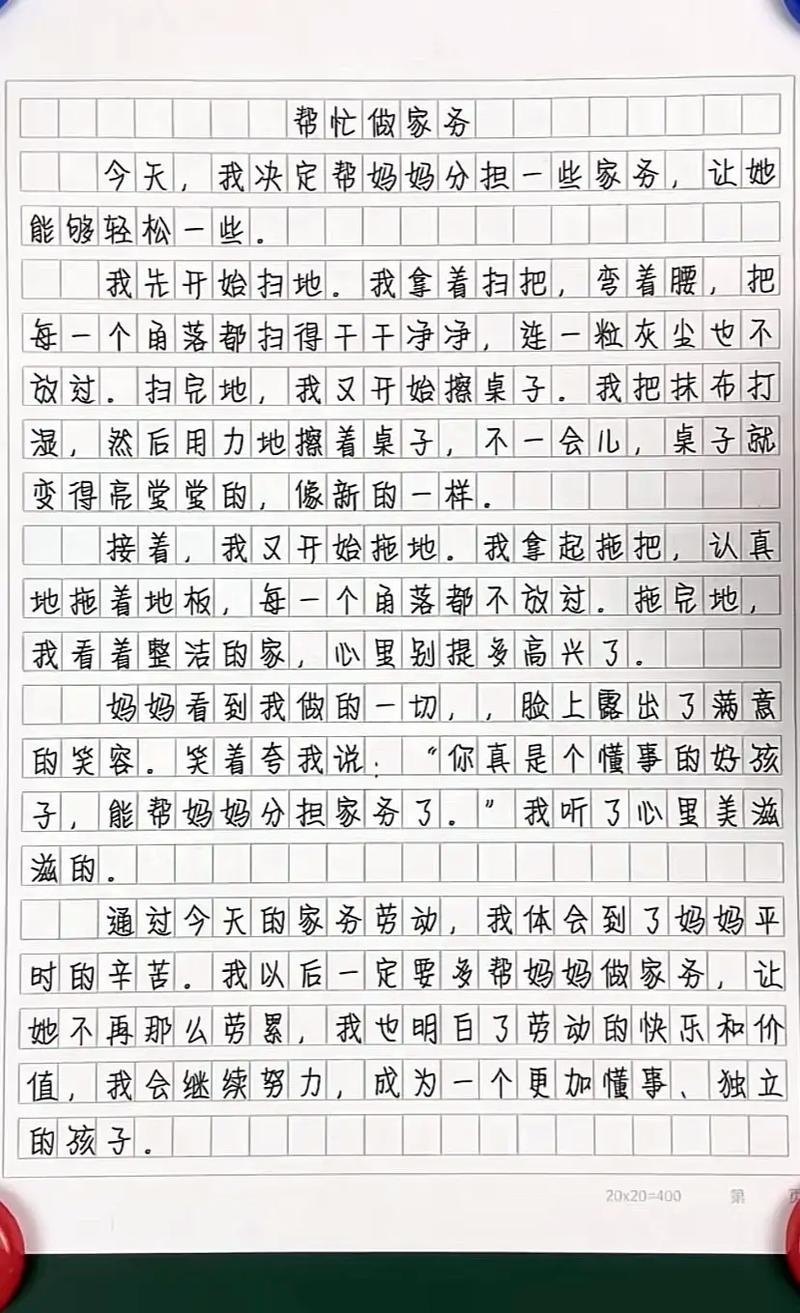 帮忙做家务
今天，我决定帮妈妈分担一些家务，让她
能够轻松一些。
我先开始扫地。我拿着扫把，弯着腰，把
每一个角落都扫得干干净净，连一粒灰尘也不
放过。扫完地，我又开始擦桌子。我把抹布打
湿，然后用力地擦着桌子，不一会儿，桌子就
变得亮堂堂的，像新的一样。
接着，我又开始拖地。我拿起拖把，认真
地拖着地板，每一个角落都不放过。拖完地，
我看着整洁的家，心里别提多高兴了。
妈妈看到我做的一切，，脸上露出了满意
的笑容。笑着夸我说：“你真是个懂事的好孩
子，能帮妈妈分担家务了。”我听了心里美滋
滋的。
通过今天的家务劳动，我体会到了妈妈平
时的辛苦。我以后一定要多帮妈妈做家务，让
她不再那么劳累，我也明白了劳动的快乐和价
值，我会继续努力，成为一个更加懂事、独立
的孩子。
20x20=400 第 页